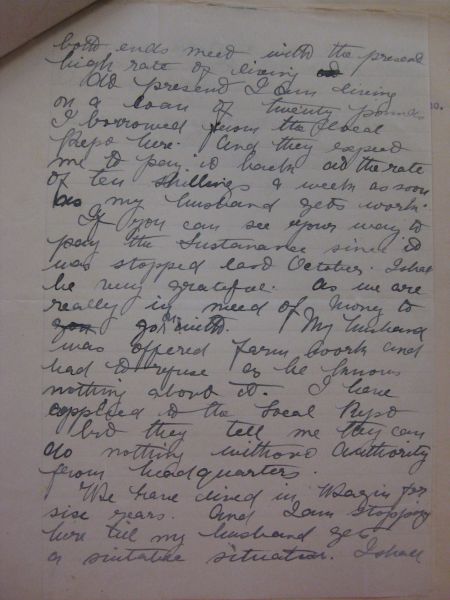 both ends meet with the present
high rate of living
At present I am living
on a loan of twenty pounds
I borrowed from the local
Repo here. And they expect
me to pay it back at the rate
of ten shillings a week as soon
as my husband gets work.
If you can see your way to
pay the Sustanance since it
was stopped last October. I shall
be very grateful. as we are
really in need of money to
go on with. My husband
was offered farm work and
had to refuse as he knows
nothing about it. I have
applied to the Local Repo
but they tell me they can
do nothing without authority
from headquarters.
We have lived in for
six years. And I am stopping
here till my husband gets
a suitable situation. I shall